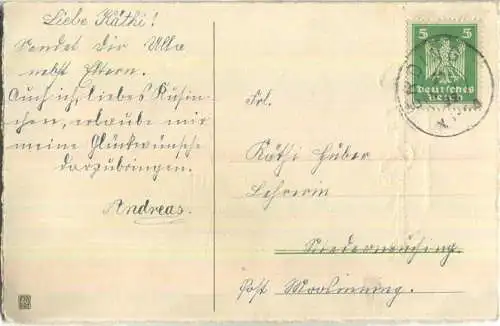 Liebe Käthi!
Sendet Dir Ulla
nebst Eltern.
Auch ich, liebes Kusin-
chen, erlaube mir
meine Glückwünsche
darzubringen.
Andreas.
5 5
Deutsches
Reich
Frl.
Käthi Huber
Lehrerin
Niederneuching.
Post